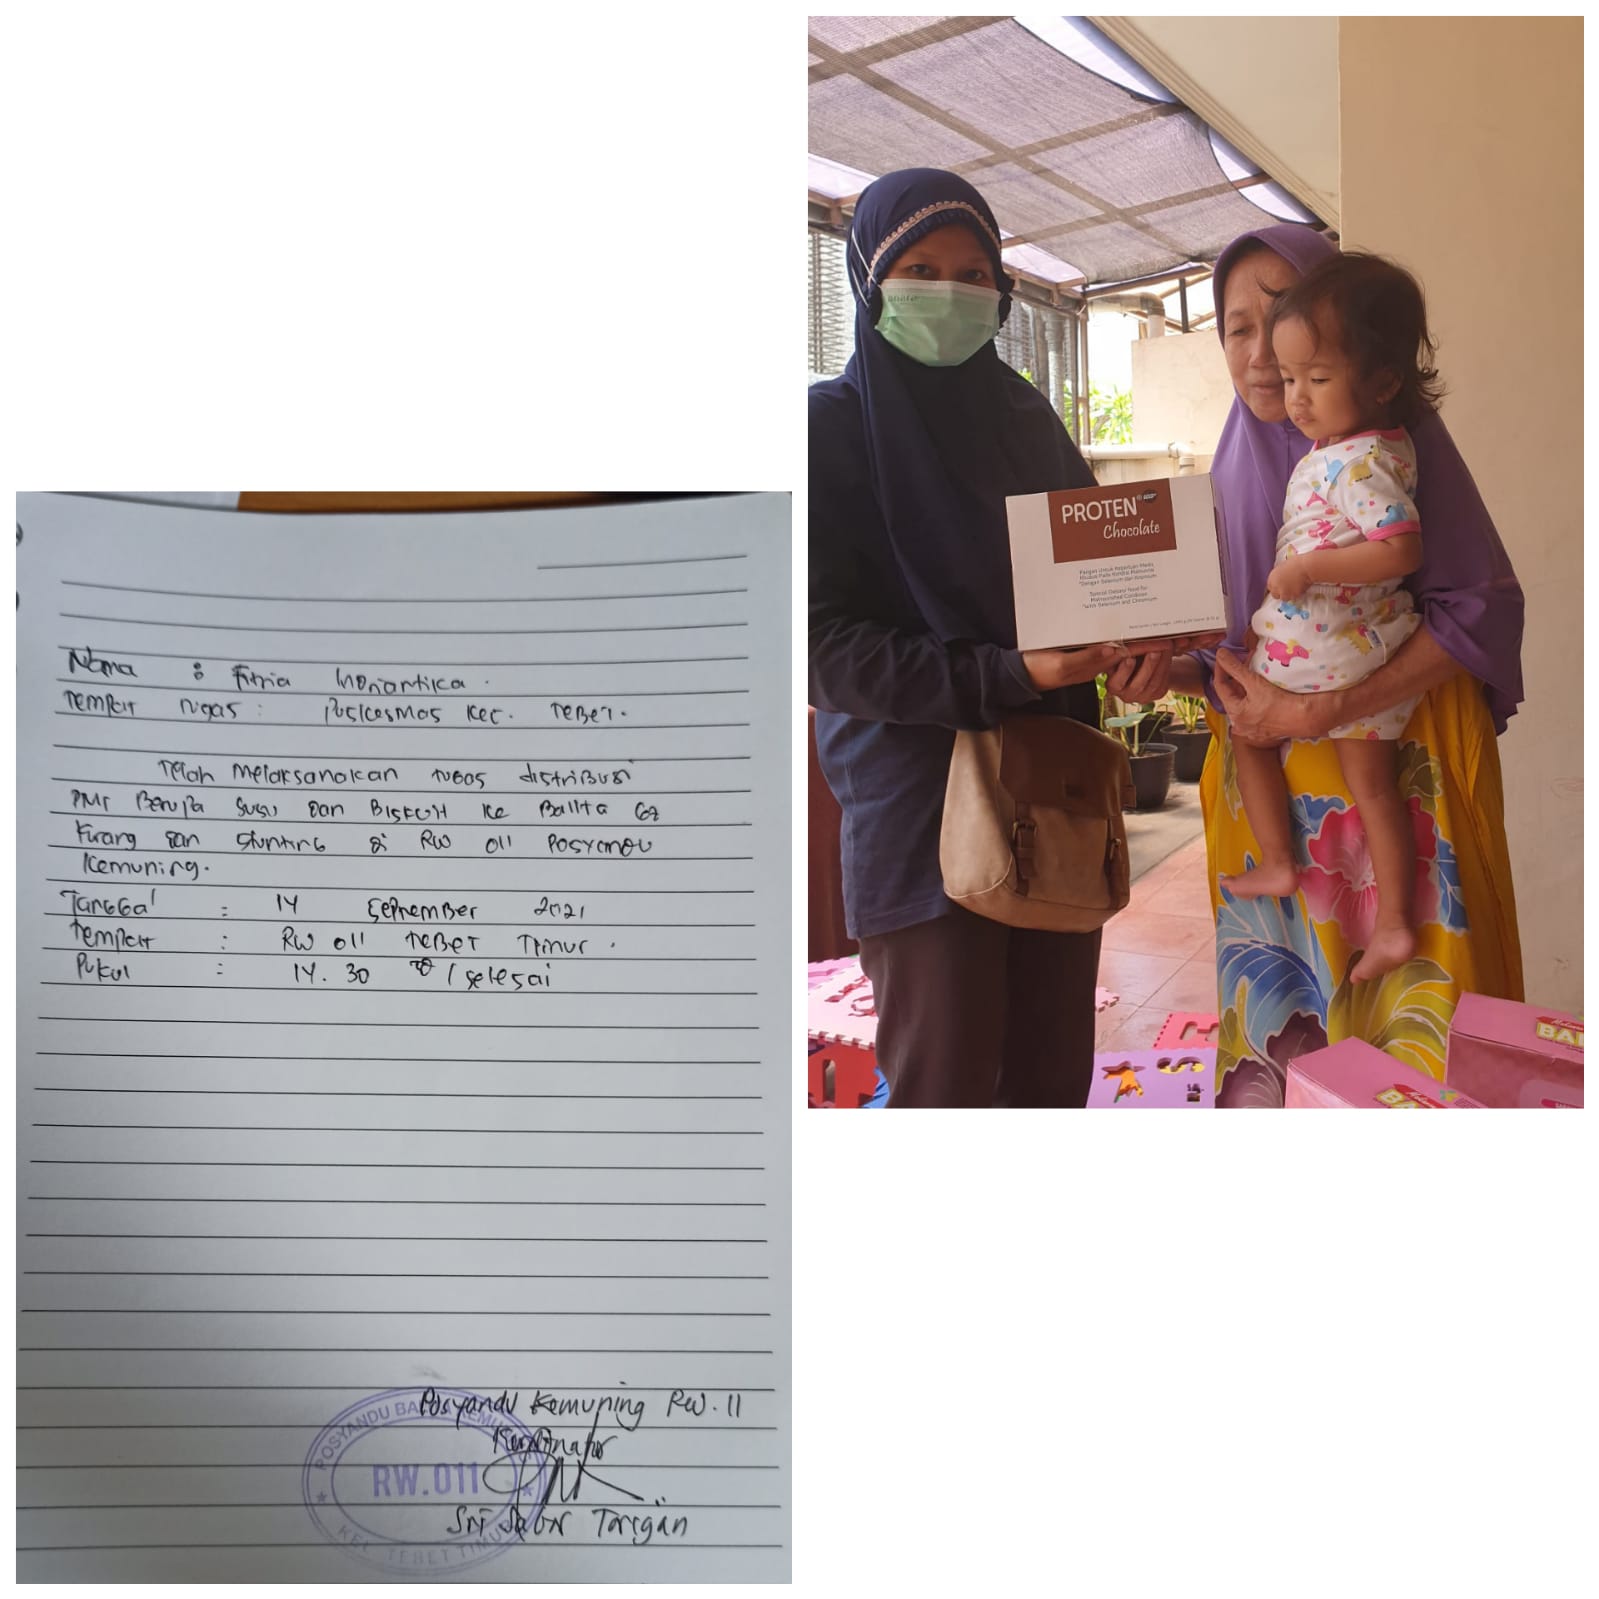 Nama : Fitria Indriartika.
Tempat Tugas : Puskesmas Kec. Tebet.
Telah Melaksanakan Tugas distribusi
PMT Berupa Susu Dan Biskuit Ke Balita Gz
Kurang Dan Stunting di RW 011 Posyandu
Kemuning.
Tanggal : 14 September 2021
Tempat : RW 011 Tebet Timur.
Pukul : 14.30 /selesai
Posyandu Kemuning RW.11
Koordinator
Sri Tarigan
POSYANDU BALITA KEMUNING
RW.011
KEL. TEBET TIMUR
anara
PROTEN
Chocolate
Pangan Untuk Keperluan Medis
Khusus Pada Kondisi Malnutrisi
*Dengan Selenium dan Kromium
Special Dietary Food for
Malnourished Condition
*with Selenium and Chromium
BA
BA